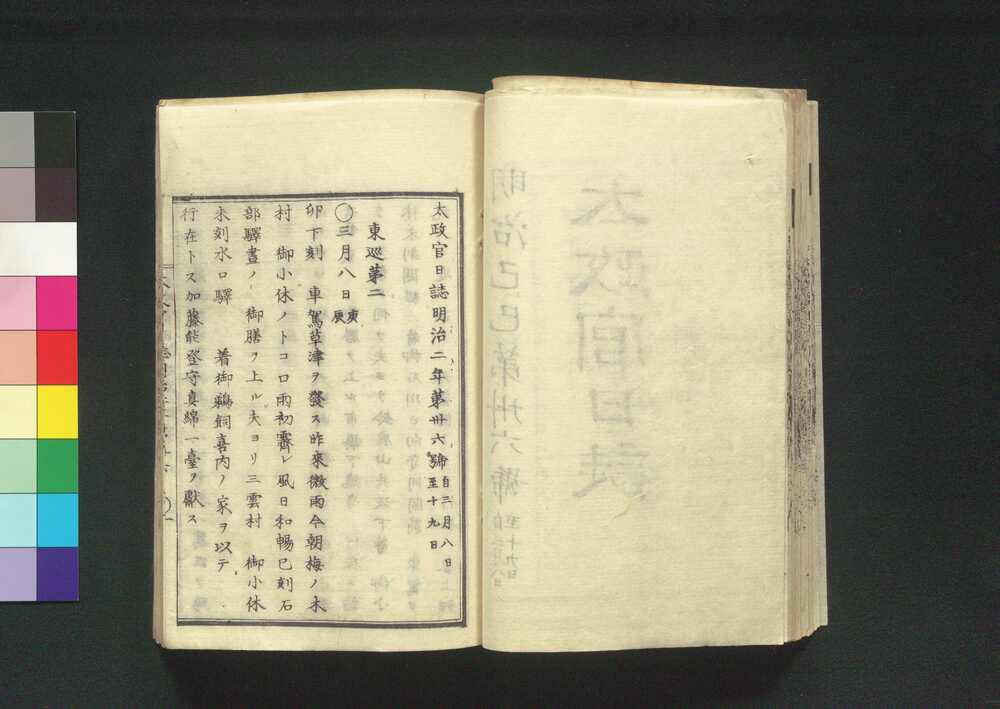 太政官日誌明治二年第卅六號 自三月八日至十九日
東巡第二
〇三月八日 庚辰
卯下刻 車駕草津ヲ發ス昨來微雨今朝梅ノ木
村 御小休ノトコロ雨初霽レ風日和暢巳刻石
部驛晝ノ 御膳ヲ上ル夫ヨリ三雲村 御小休
未刻水口驛 著御鵜飼喜内ノ家ヲ以テ
行在トス加藤能登守真綿一臺ヲ獻ス